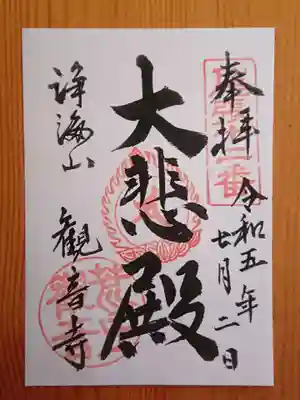 奉拝
令和五年
七月二日
大悲殿
淨海山
觀音寺